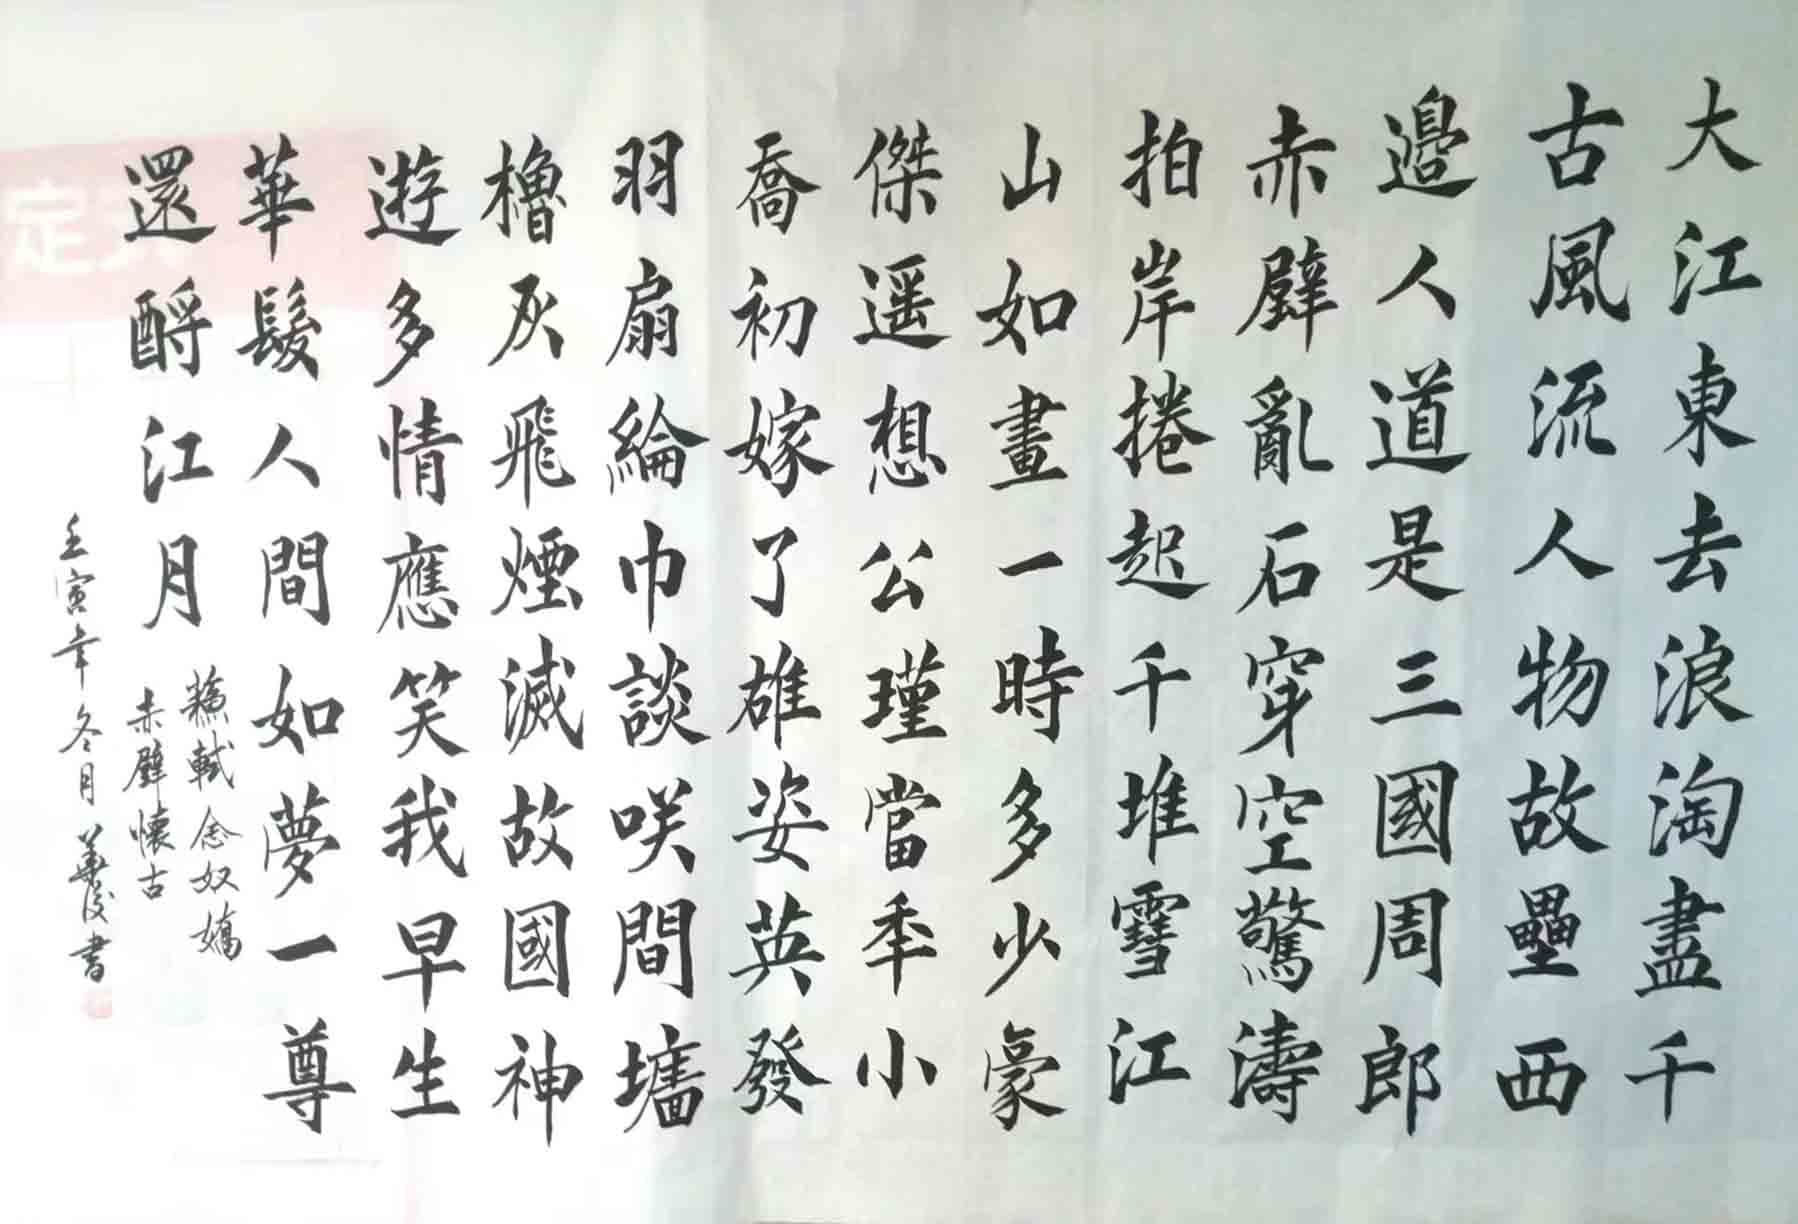 大江東去浪淘盡千
古風流人物故壘西
邊人道是三國周郎
赤壁亂石穿空驚濤
拍岸捲起千堆雪江
山如畫一時多少豪
傑遥想公瑾當年小
喬初嫁了雄姿英發
羽扇綸巾談咲間墻
櫓灰飛煙滅故國神
遊多情應笑我早生
華髮人間如夢一尊
還酹江月
蘇軾念奴嬌
赤壁懷古
壬寅年冬月華俊書
定天